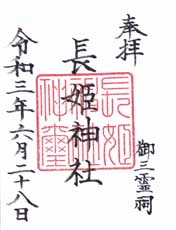 奉拝
御三霊祠
長姫神社
令和三年六月二十八日